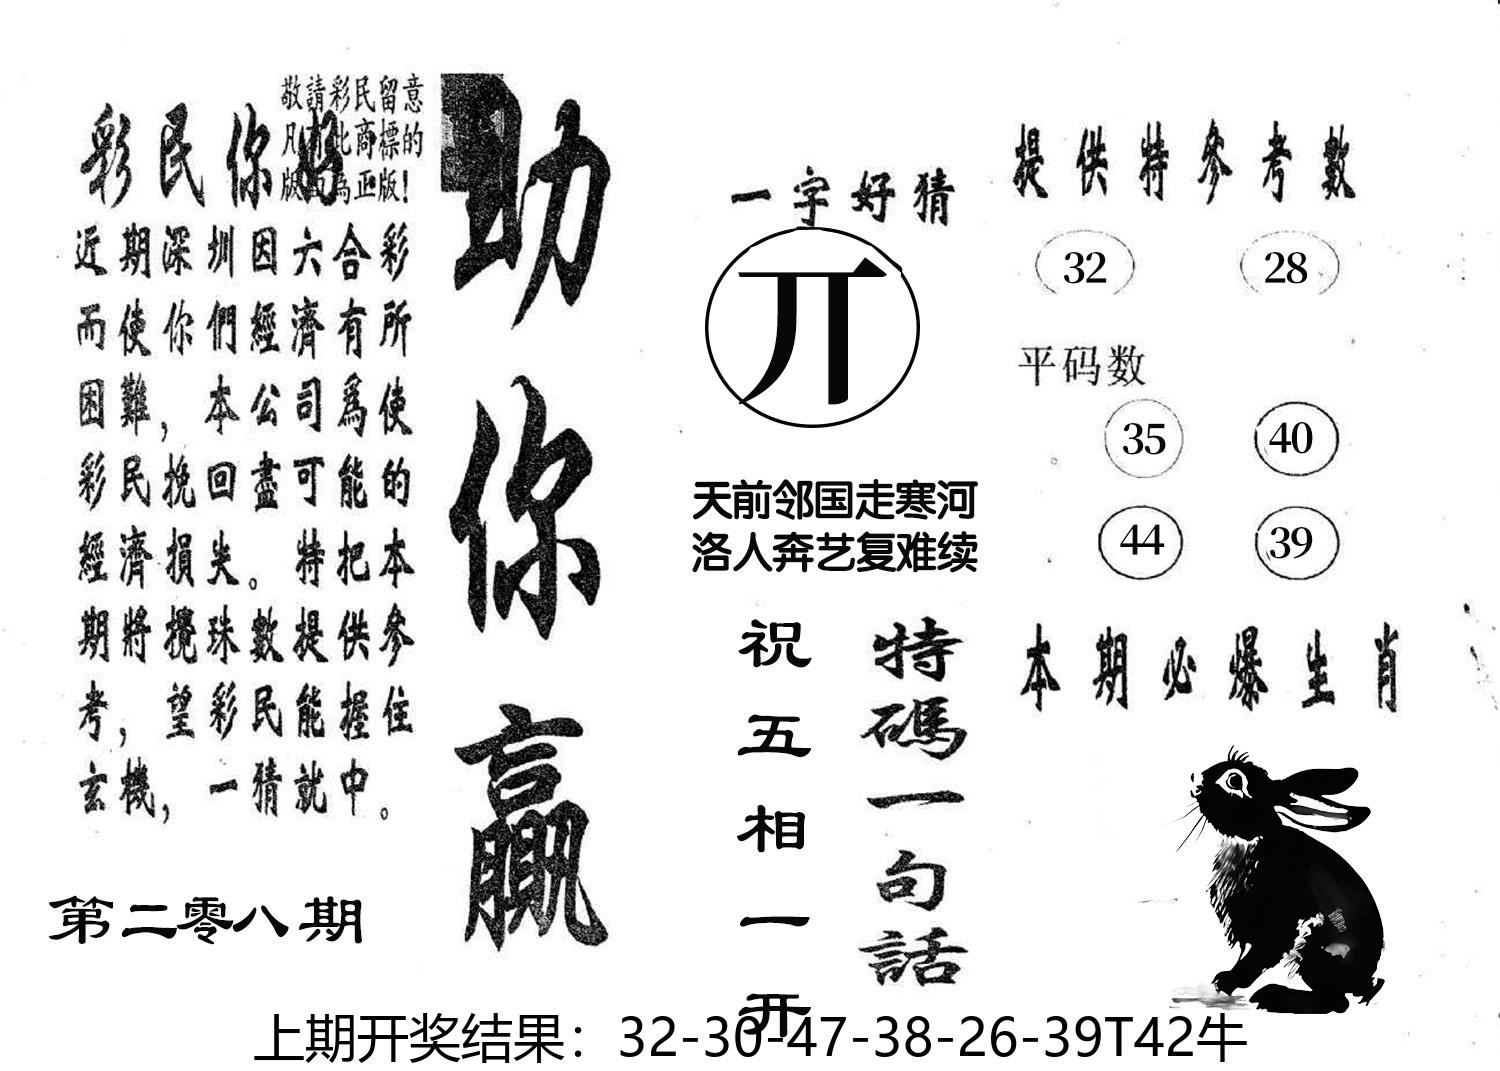 敬請彩民留意
凡有此商標的
版面為正版！
彩民你好
近期深圳因六合彩
而使你們經濟有所
困難，本公司爲使
彩民挽回盡可能的
經濟損失。特把本
期將攪珠數提供參
考，望彩民能握住
玄機，一猜就中。
第二零八期
助你贏
一字好猜
天前邻国走寒河
洛人奔艺复难续
特碼一句話
祝五相一开
提供特參考數
32 28
平码数
35 40
44 39
本期必爆生肖
上期开奖结果：32-30-47-38-26-39T42牛